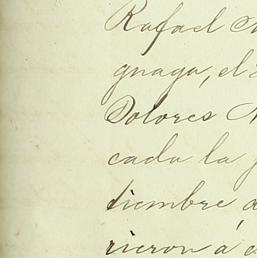 Rafael
guaga, el
Dolores
cada la
tiembre a
rieron á